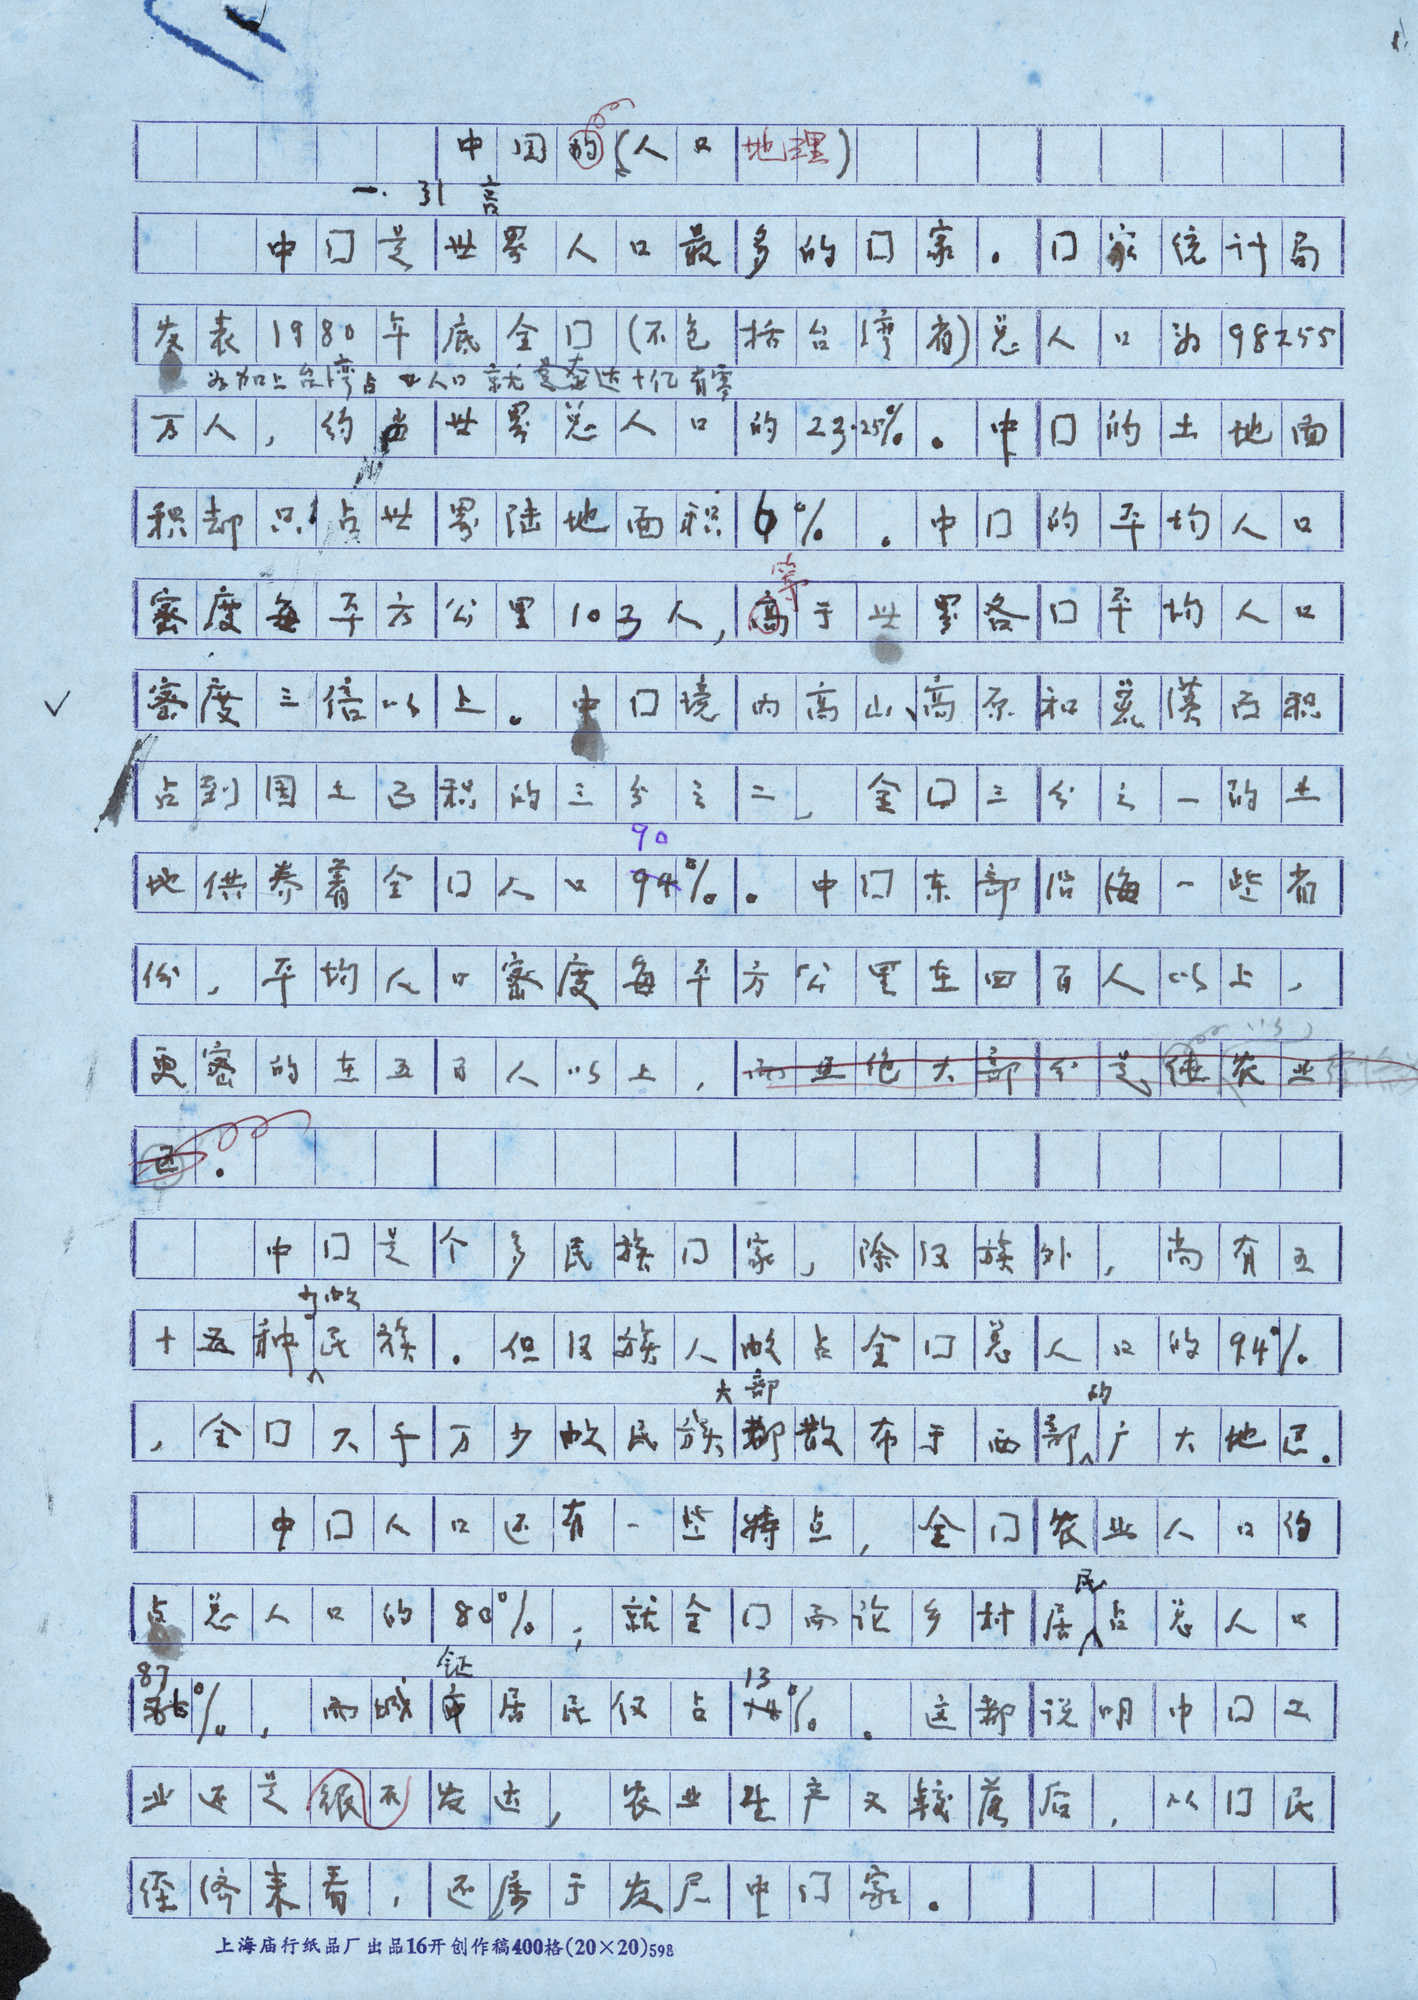 中国的(人口地理)
一.引言
中国是世界人口最多的国家。国家统计局
发表1980年底全国(不包括台湾省)总人口为98255
为加上台湾占 人口就 达十亿有零
万人，约占世界总人口的23.25%。中国的土地面
积却只占世界陆地面积6%。中国的平均人口
等
密度每平方公里103人，高于世界各国平均人口
密度三倍以上。中国境内高山、高原和荒漠面积
占到国土面积的三分之二，全国三分之一的土
90
地供养着全国人口94%。中国东部沿海一些省
份，平均人口密度每平方公里在四百人以上，
以
更密的在五百人以上，而且绝大部分是纯农业
区。
中国是个多民族国家，除汉族外，尚有五
少数
十五种民族。但汉族人数占全国总人口的94%
大部 的
，全国六千万少数民族都散布于西部广大地区。
中国人口还有一些特点，全国农业人口约
民
占总人口的80%，就全国而论乡村居占总人口
87 镇 13
86%，而城市居民仅占14%。这都说明中国工
业还是很不发达，农业生产又较落后，从国民
经济来看，还属于发展中国家。
上海庙行纸品厂出品16开创作稿400格(20×20)598